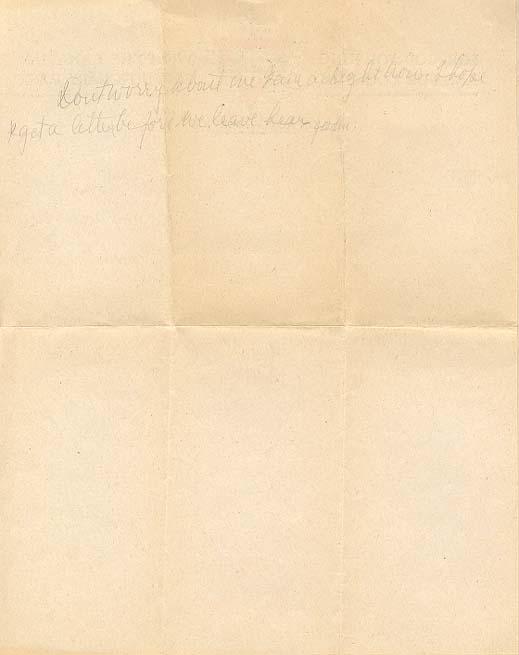 Dont worry about me I am alright now. I hope
I get a letter before we leave hear